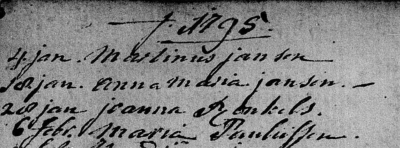 †. 1795.
4 jan. Martinus jansen
18 jan. anna maria jansen. —
28 jan joanna Renkels.
6 febr. maria Paulussen.